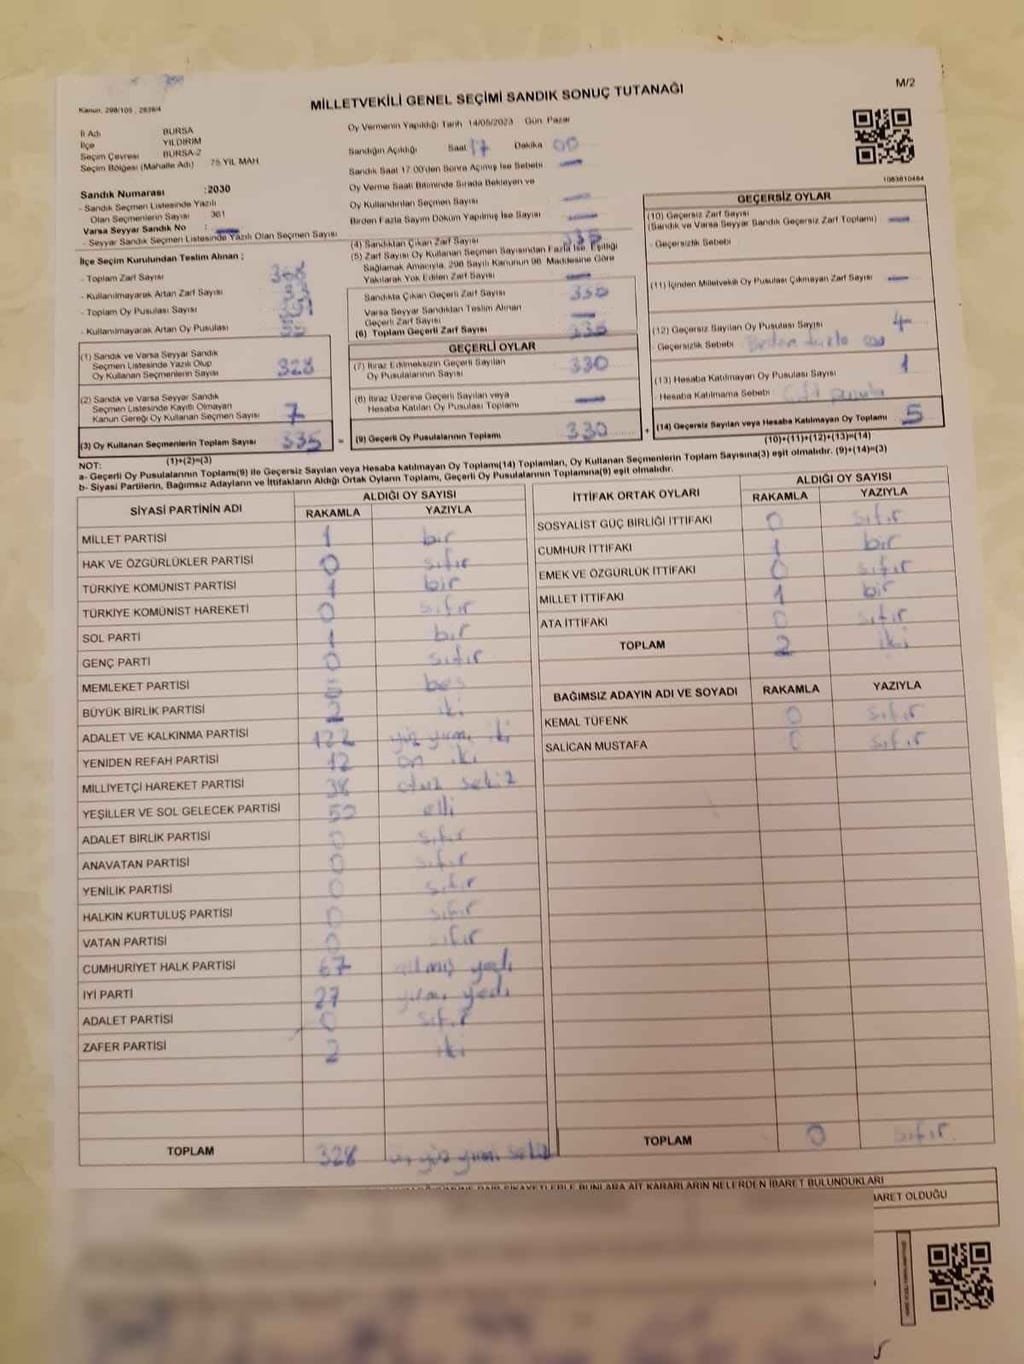 M/2
Kanun: 298/105 , 2839/4
MİLLETVEKİLİ GENEL SEÇİMİ SANDIK SONUÇ TUTANAĞI
İl Adı BURSA
İlçe YILDIRIM
Seçim Çevresi BURSA-2
Seçim Bölgesi (Mahalle Adı) 75 YIL MAH
Sandık Numarası :2030
- Sandık Seçmen Listesinde Yazılı
Olan Seçmenlerin Sayısı : 361
Varsa Seyyar Sandık No : —
- Seyyar Sandık Seçmen Listesinde Yazılı Olan Seçmen Sayısı
İlçe Seçim Kurulundan Teslim Alınan ;
- Toplam Zarf Sayısı
- Kullanılmayarak Artan Zarf Sayısı
- Toplam Oy Pusulası Sayısı
- Kullanılmayarak Artan Oy Pusulası
(1) Sandık ve Varsa Seyyar Sandık
Seçmen Listesinde Yazılı Olup
Oy Kullanan Seçmenlerin Sayısı 328
(2) Sandık ve Varsa Seyyar Sandık
Seçmen Listesinde Kayıtlı Olmayan
Kanun Gereği Oy Kullanan Seçmen Sayısı 7
(3) Oy Kullanan Seçmenlerin Toplam Sayısı 335 =
(1)+(2)=(3)
Oy Vermenin Yapıldığı Tarih 14/05/2023 Gün Pazar
Sandığın Açıldığı Saat 17 Dakika 00
Sandık Saat 17:00'den Sonra Açılmış İse Sebebi —
Oy Verme Saati Bitiminde Sırada Bekleyen ve
Oy Kullandırılan Seçmen Sayısı —
Birden Fazla Sayım Döküm Yapılmış İse Sayısı —
(4) Sandıktan Çıkan Zarf Sayısı 335
(5) Zarf Sayısı Oy Kullanan Seçmen Sayısından Fazla İse, Eşitliği
Sağlamak Amacıyla, 298 Sayılı Kanunun 98. Maddesine Göre
Yakılarak Yok Edilen Zarf Sayısı —
Sandıkta Çıkan Geçerli Zarf Sayısı
Varsa Seyyar Sandıktan Teslim Alınan
Geçerli Zarf Sayısı —
(6) Toplam Geçerli Zarf Sayısı 335
GEÇERLİ OYLAR
(7) İtiraz Edilmeksizin Geçerli Sayılan
Oy Pusulalarının Sayısı 330
(8) İtiraz Üzerine Geçerli Sayılan veya
Hesaba Katılan Oy Pusulası Toplamı —
(9) Geçerli Oy Pusulalarının Toplamı 330 +
1083810484
GEÇERSİZ OYLAR
(10) Geçersiz Zarf Sayısı
(Sandık ve Varsa Seyyar Sandık Geçersiz Zarf Toplamı) —
- Geçersizlik Sebebi
(11) İçinden Milletvekili Oy Pusulası Çıkmayan Zarf Sayısı —
(12) Geçersiz Sayılan Oy Pusulası Sayısı 4
- Geçersizlik Sebebi Birden fazla oy
(13) Hesaba Katılmayan Oy Pusulası Sayısı 1
- Hesaba Katılmama Sebebi Çift pusula
(14) Geçersiz Sayılan veya Hesaba Katılmayan Oy Toplamı 5
(10)+(11)+(12)+(13)=(14)
NOT:
a- Geçerli Oy Pusulalarının Toplamı(9) ile Geçersiz Sayılan veya Hesaba katılmayan Oy Toplamı(14) Toplamları, Oy Kullanan Seçmenlerin Toplam Sayısına(3) eşit olmalıdır. (9)+(14)=(3)
b- Siyasi Partilerin, Bağımsız Adayların ve İttifakların Aldığı Ortak Oyların Toplamı, Geçerli Oy Pusulalarının Toplamına(9) eşit olmalıdır.
SİYASİ PARTİNİN ADI ALDIĞI OY SAYISI
RAKAMLA YAZIYLA
MİLLET PARTİSİ 1 bir
HAK VE ÖZGÜRLÜKLER PARTİSİ 0 sıfır
TÜRKİYE KOMÜNİST PARTİSİ 1 bir
TÜRKİYE KOMÜNİST HAREKETİ 0 sıfır
SOL PARTİ 1 bir
GENÇ PARTİ 0 sıfır
MEMLEKET PARTİSİ 5 beş
BÜYÜK BİRLİK PARTİSİ 2 iki
ADALET VE KALKINMA PARTİSİ 122 yüz yirmi iki
YENİDEN REFAH PARTİSİ 12 on iki
MİLLİYETÇİ HAREKET PARTİSİ 38 otuz sekiz
YEŞİLLER VE SOL GELECEK PARTİSİ 50 elli
ADALET BİRLİK PARTİSİ 0 sıfır
ANAVATAN PARTİSİ 0 sıfır
YENİLİK PARTİSİ 0 sıfır
HALKIN KURTULUŞ PARTİSİ 0 sıfır
VATAN PARTİSİ 0 sıfır
CUMHURİYET HALK PARTİSİ 67 altmış yedi
İYİ PARTİ 27 yirmi yedi
ADALET PARTİSİ 0 sıfır
ZAFER PARTİSİ 2 iki
TOPLAM 328 üç yüz yirmi sekiz
İTTİFAK ORTAK OYLARI ALDIĞI OY SAYISI
RAKAMLA YAZIYLA
SOSYALİST GÜÇ BİRLİĞİ İTTİFAKI 0 sıfır
CUMHUR İTTİFAKI 1 bir
EMEK VE ÖZGÜRLÜK İTTİFAKI 0 sıfır
MİLLET İTTİFAKI 1 bir
ATA İTTİFAKI 0 sıfır
TOPLAM 2 iki
BAĞIMSIZ ADAYIN ADI VE SOYADI RAKAMLA YAZIYLA
KEMAL TÜFENK 0 sıfır
SALİCAN MUSTAFA 0 sıfır
TOPLAM 0 sıfır
DAİR ŞİKAYETLERLE BUNLARA AİT KARARLARIN NELERDEN İBARET BULUNDUKLARI
İBARET OLDUĞU